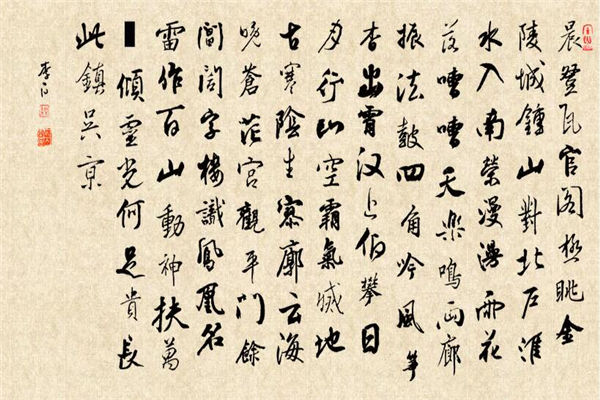 晨登瓦官阁極眺金
陵城鍾山對北户淮
水入南榮漫漫雨花
落嘈嘈天樂鳴兩廊
振法鼓四角吟風筝
杳出霄汉上仰攀日
月行山空霸氣滅地
古寒陰生寥廓云海
晚蒼茫宫觀平門餘
閶闔字楼識鳳凰名
雷作百山動神扶萬
傾靈光何足貴長
此鎮吴京
李白